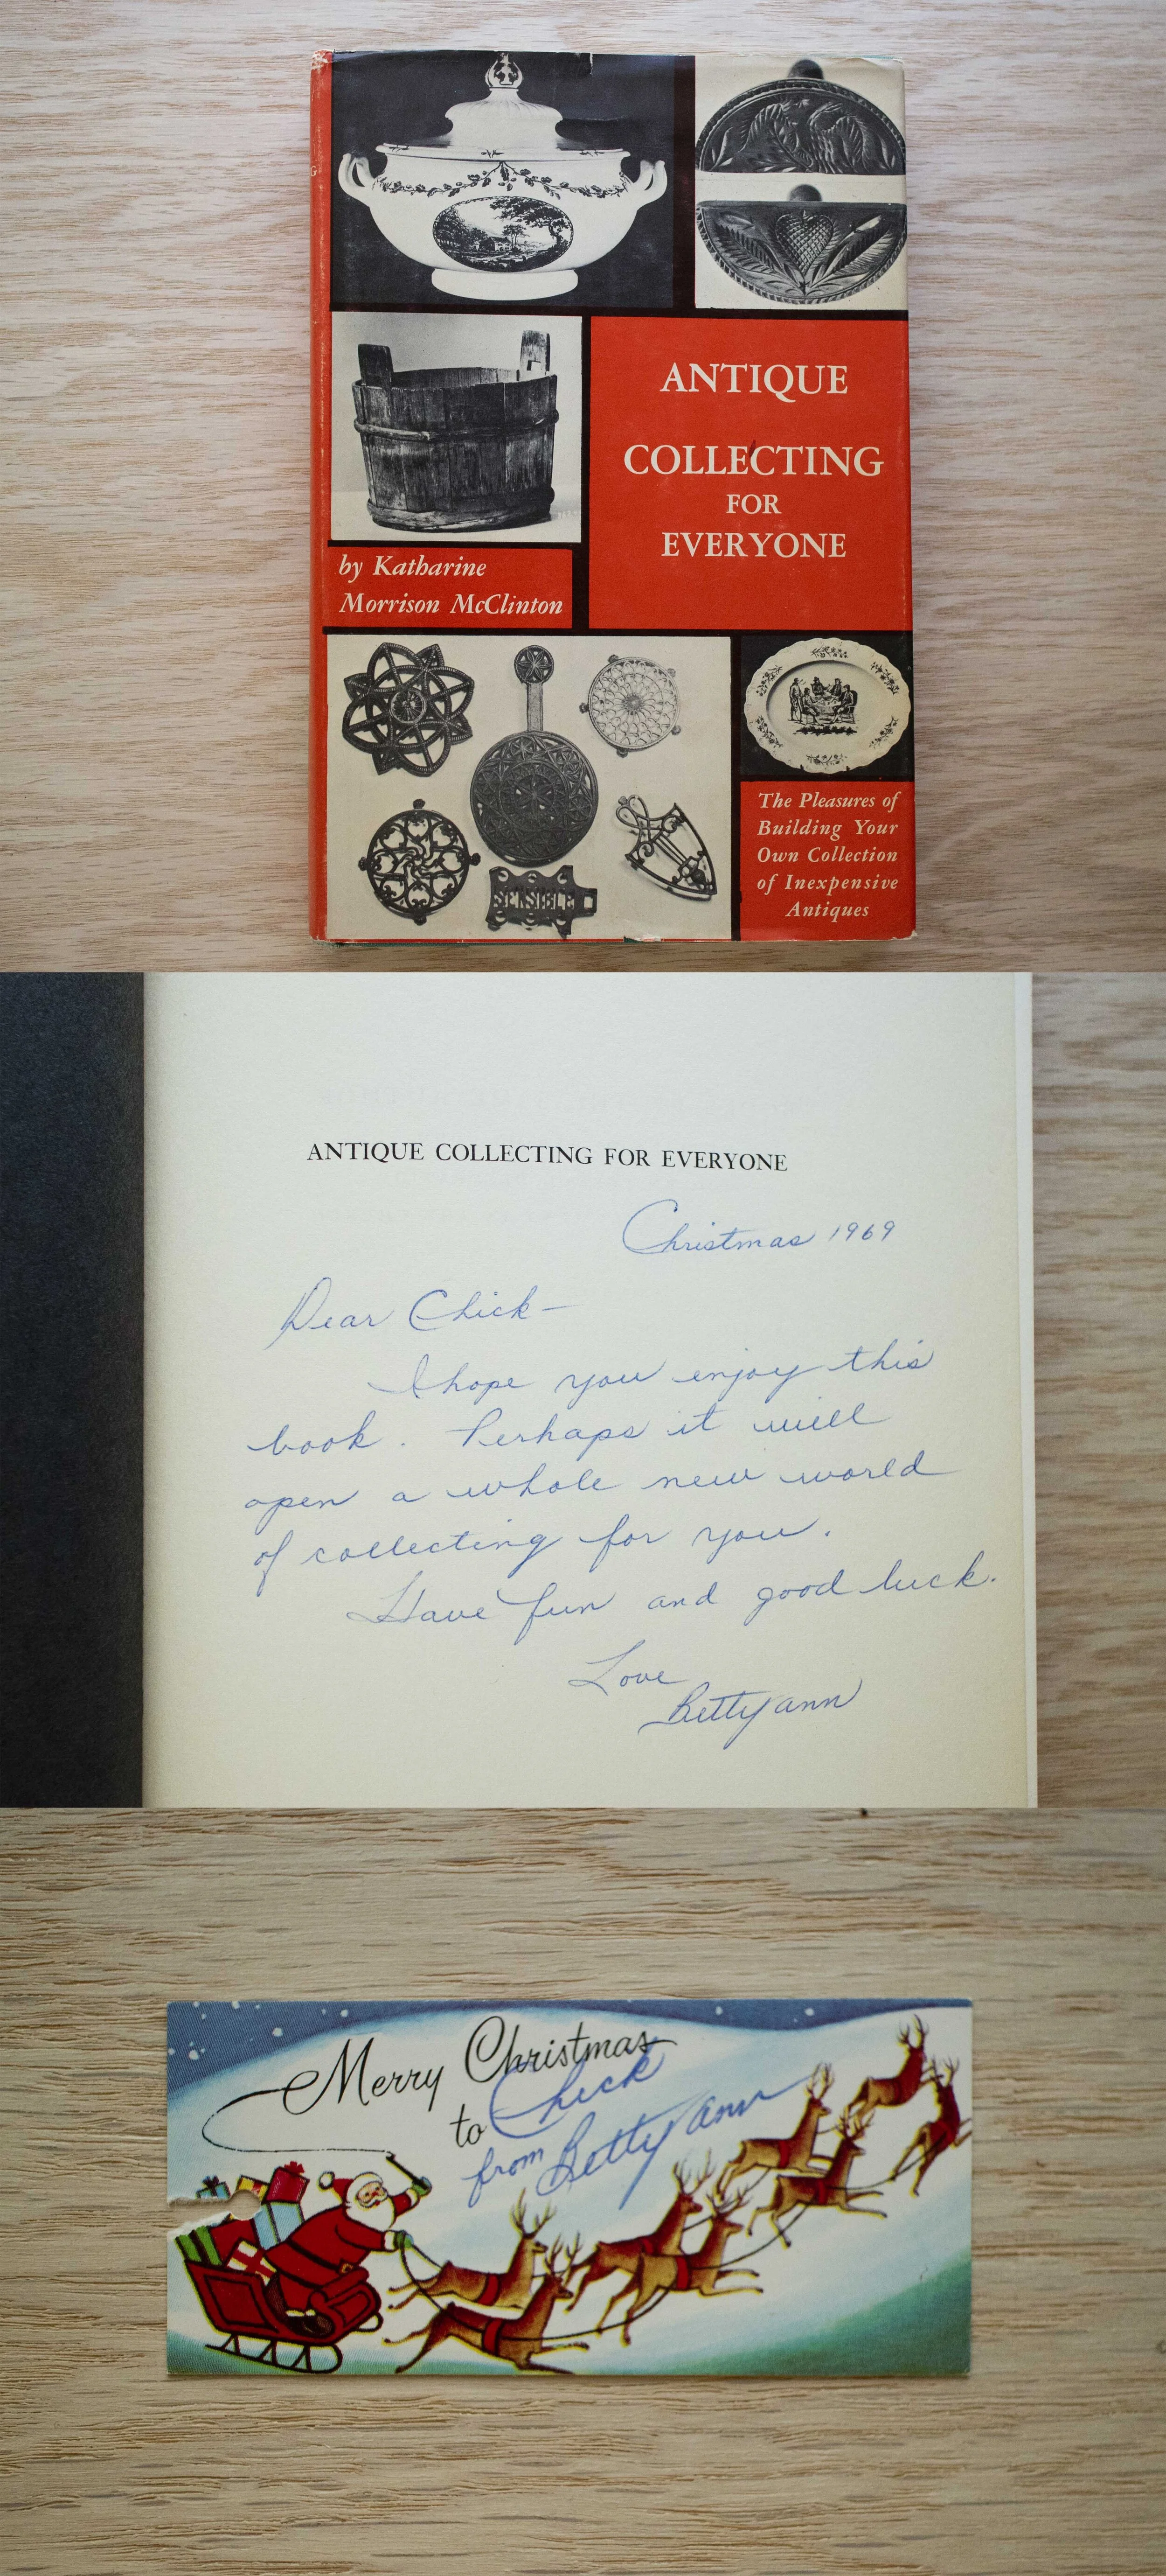 ANTIQUE
COLLECTING
FOR
EVERYONE
by Katharine
Morrison McClinton
SENSIBLE
The Pleasures of
Building Your
Own Collection
of Inexpensive
Antiques
ANTIQUE COLLECTING FOR EVERYONE
Christmas 1969
Dear Chick—
I hope you enjoy this
book. Perhaps it will
open a whole new world
of collecting for you.
Have fun and good luck.
Love
Betty ann
Merry Christmas
to Chick
from Betty ann